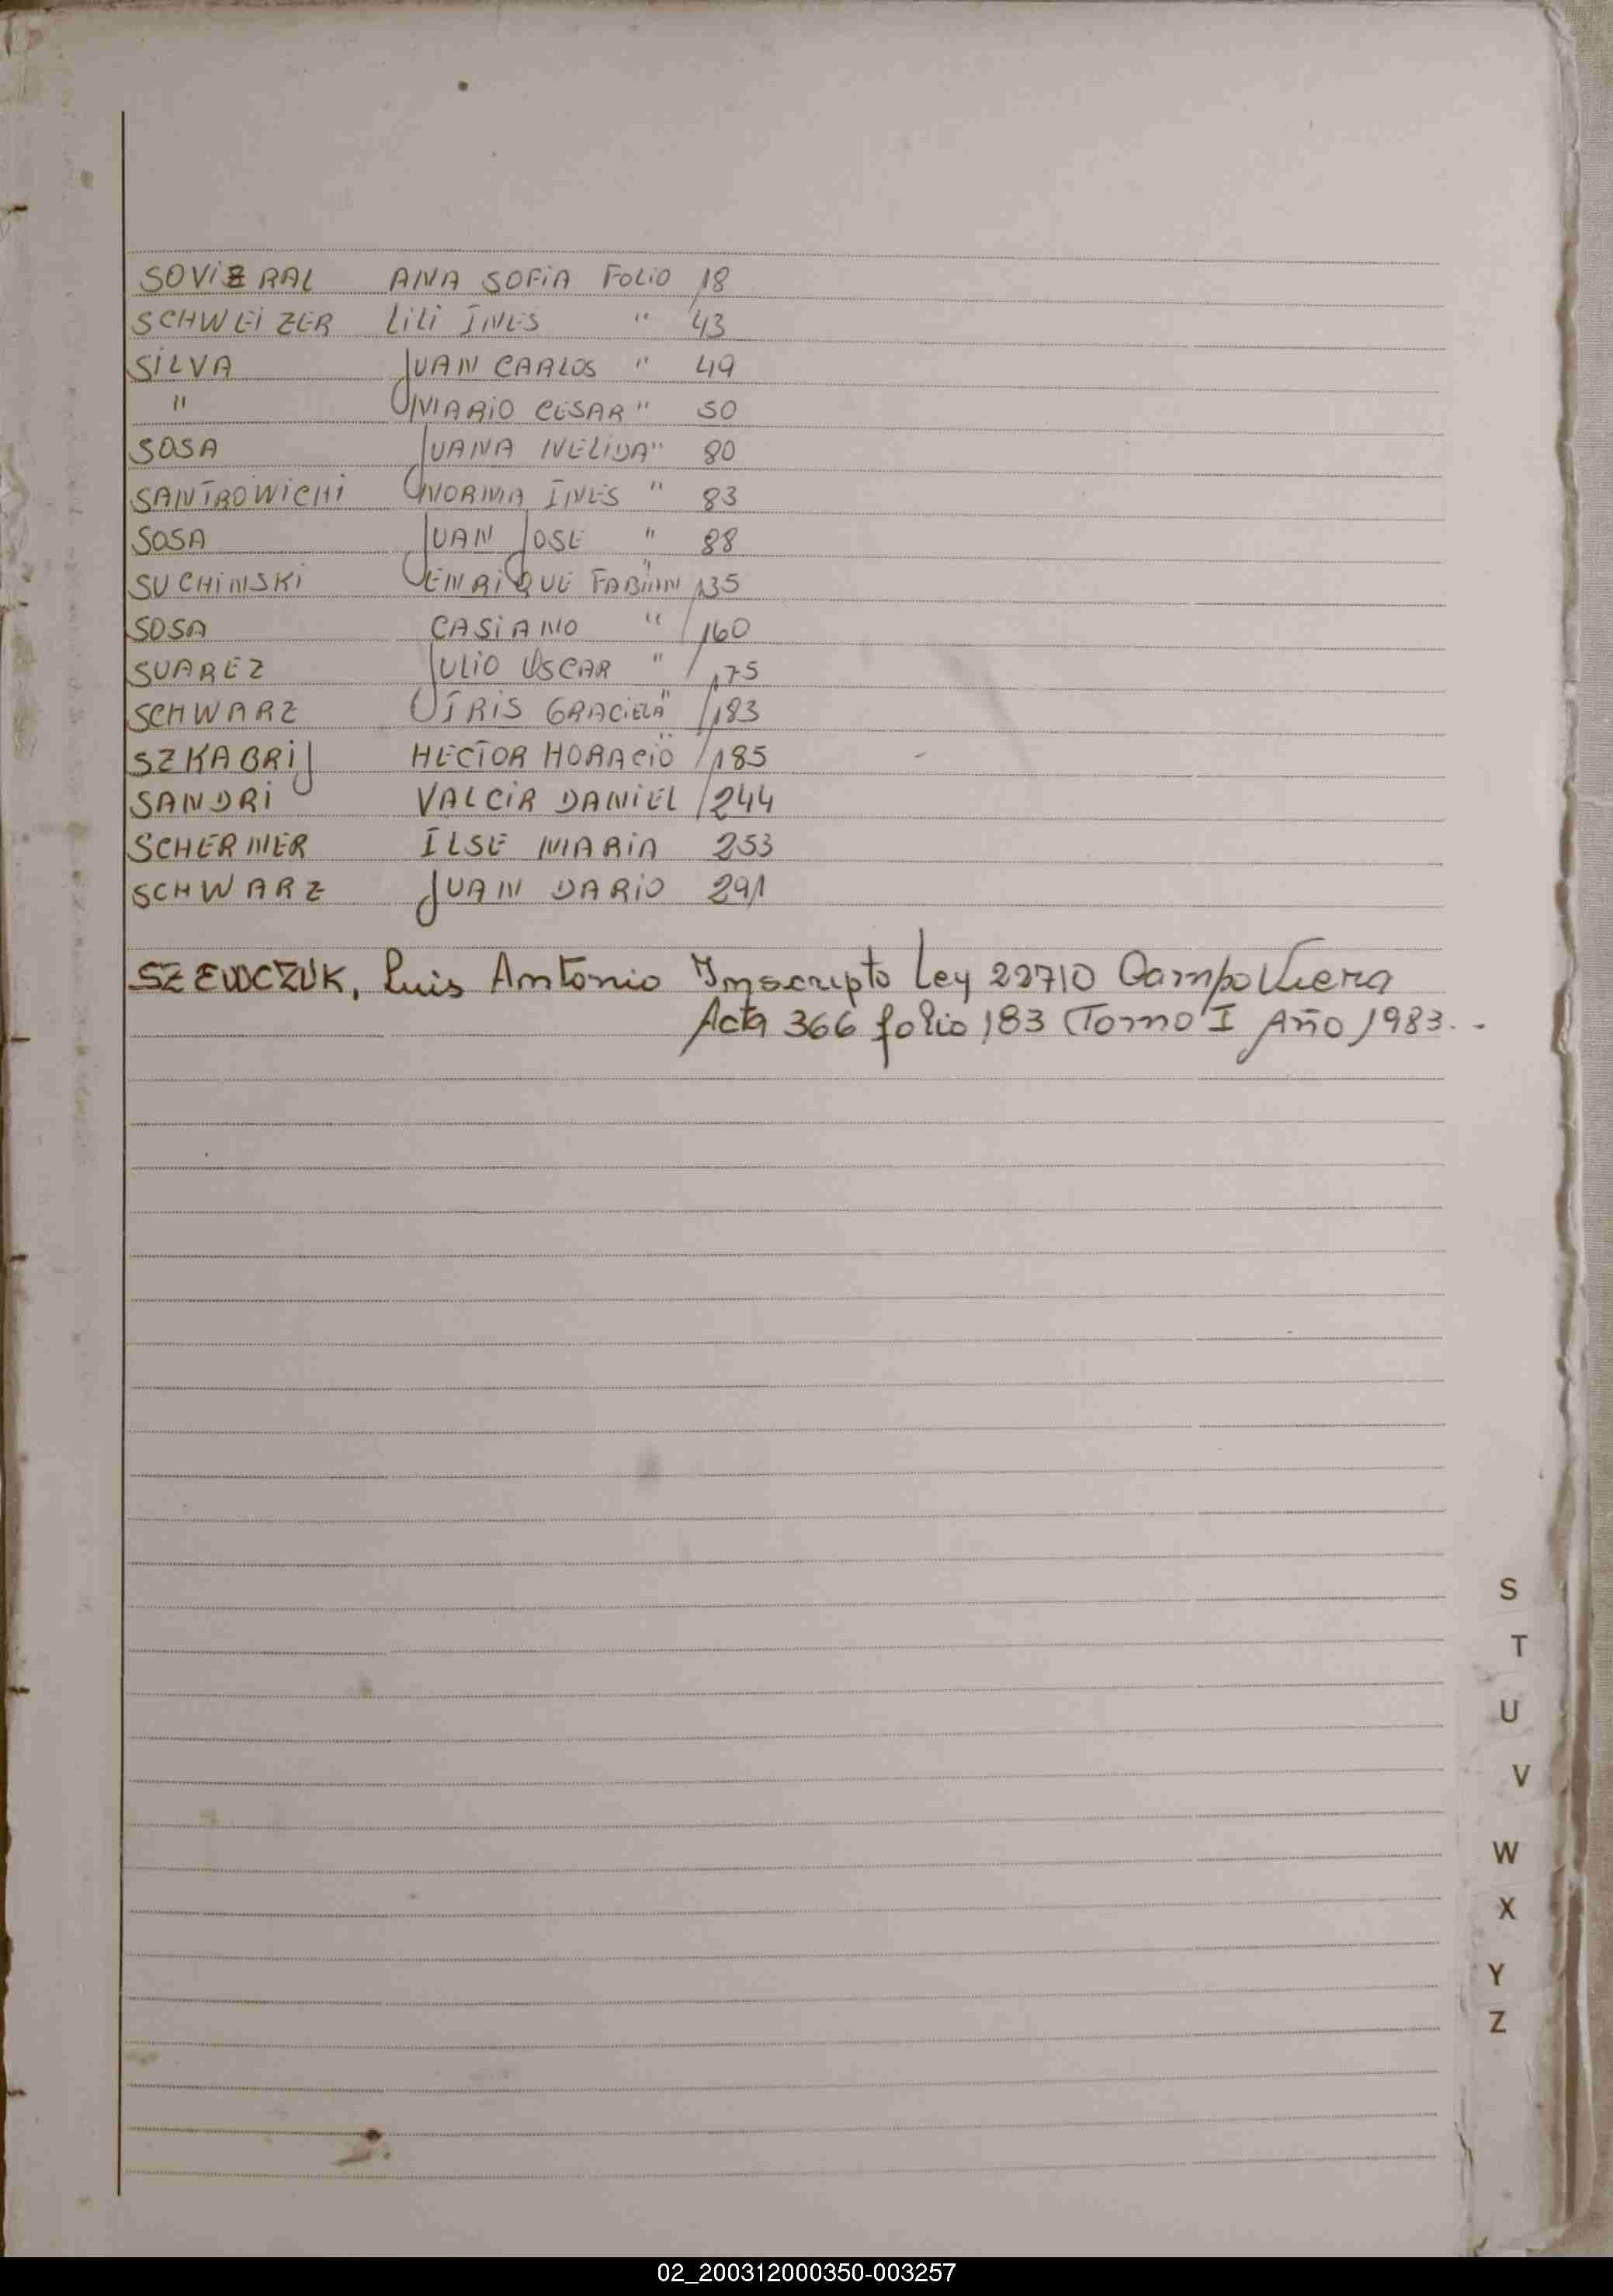 SOVIERAL ANA SOFIA FOLIO 18
SCHWEIZER LILI INES " 43
SILVA JUAN CARLOS " 49
" MARIO CESAR " 50
SOSA JUANA NELIDA " 80
SANTROWICHI NORMA INES " 83
SOSA JUAN JOSE " 88
SUCHINSKI ENRIQUE FABIAN " 135
SOSA CASIANO " / 160
SUAREZ JULIO OSCAR " / 175
SCHWARZ IRIS GRACIELA " / 183
SZKABRIJ HECTOR HORACIO " / 185
SANDRI VALCIR DANIEL / 244
SCHERNER ILSE MARIA 253
SCHWARZ JUAN DARIO 291
SZEWCZUK, Luis Antonio Inscripto Ley 22710 Campo Viera
Acta 366 folio 183 Tomo I Año 1983.-
S
T
U
V
W
X
Y
Z
02_200312000350-003257